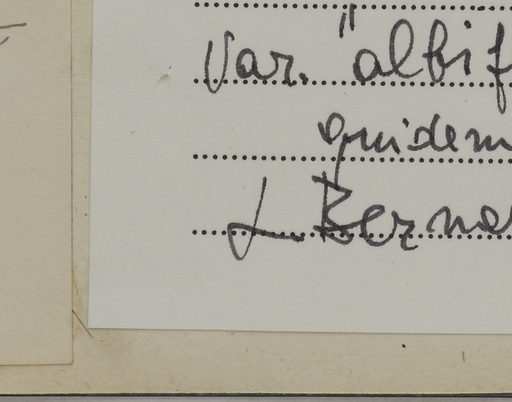 Var. "albif
quidem
L Berna